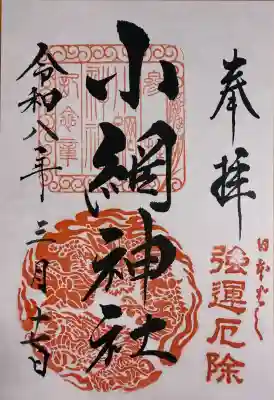 奉拝
日本ばし
強運厄除
小網神社
令和八年三月十七日